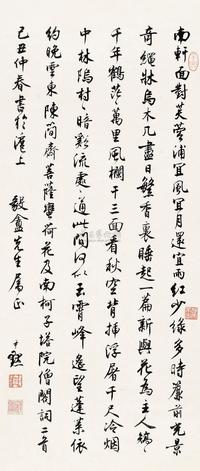 南軒面對芙蓉浦宜風宜月還宜雨紅少綠多時簾前光景
奇繩牀烏木几盡日繁香裏睡起一篇新與花為主人矯矯
千年鶴茫茫萬里風闌干三面看秋空背插浮屠千尺冷烟
中林塢村村暗溪流處處通此間何似玉霄峰遥望蓬萊依
約晚雲東陳簡齋菩薩蠻荷花及南柯子塔院僧閣詞二首
己丑仲春書於滬上
毅盦先生属正
尹默